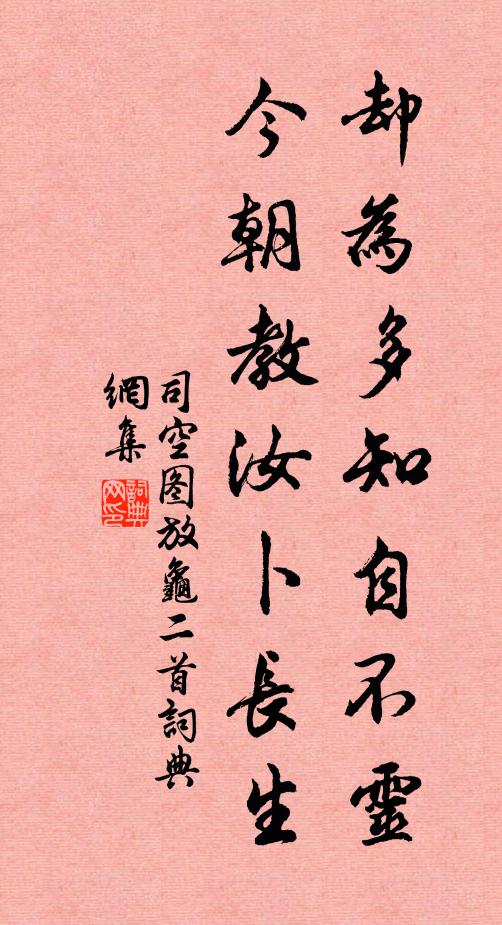 却為多知自不靈
今朝教汝卜長生
司空图放龜二首詞典
網集
詞典網印